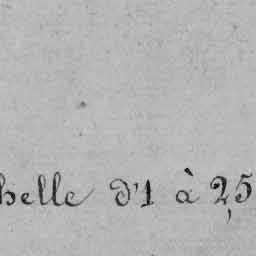 helle d'1 à 2,5